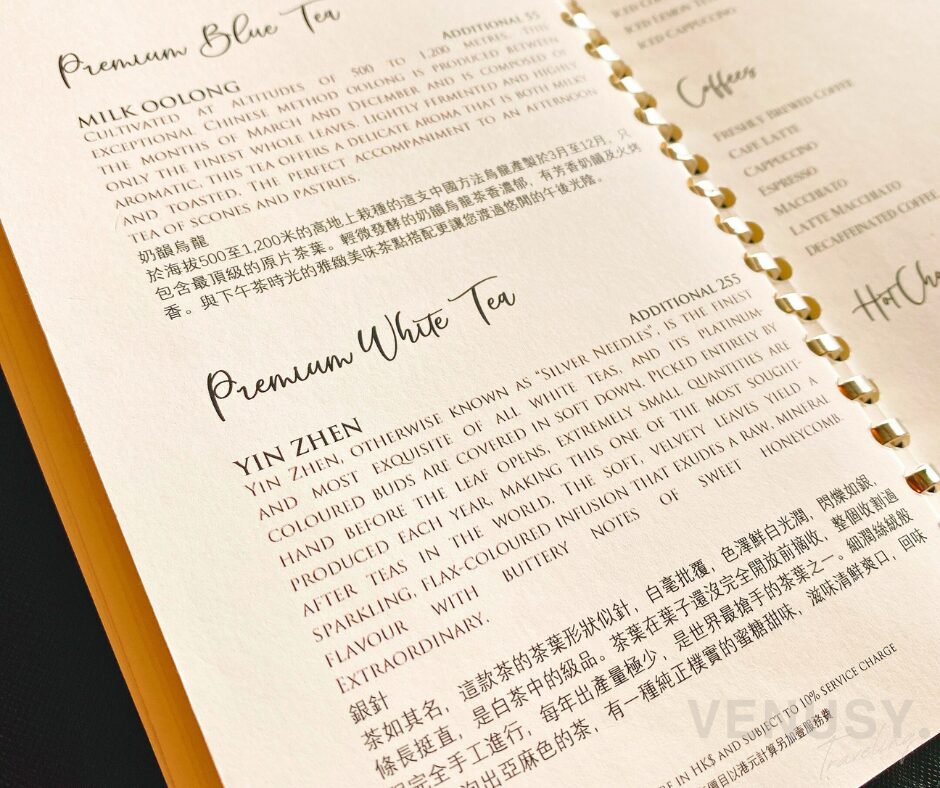 Premium Blue Tea
ADDITIONAL 55
MILK OOLONG
CULTIVATED AT ALTITUDES OF 500 TO 1,200 METRES, THIS
EXCEPTIONAL CHINESE METHOD OOLONG IS PRODUCED BETWEEN
THE MONTHS OF MARCH AND DECEMBER AND IS COMPOSED OF
ONLY THE FINEST WHOLE LEAVES. LIGHTLY FERMENTED AND HIGHLY
AROMATIC, THIS TEA OFFERS A DELICATE AROMA THAT IS BOTH MILKY
AND TOASTED. THE PERFECT ACCOMPANIMENT TO AN AFTERNOON
TEA OF SCONES AND PASTRIES.
奶韻烏龍
於海拔500至1,200米的高地上栽種的這支中國方法烏龍產製於3月至12月，只
包含最頂級的原片茶葉。輕微發酵的奶韻烏龍茶香濃郁，有芳香奶韻及火烤
香。與下午茶時光的雅緻美味茶點搭配更讓您渡過悠閒的午後光陰。
Premium White Tea
ADDITIONAL 255
YIN ZHEN
YIN ZHEN, OTHERWISE KNOWN AS "SILVER NEEDLES", IS THE FINEST
AND MOST EXQUISITE OF ALL WHITE TEAS, AND ITS PLATINUM-
COLOURED BUDS ARE COVERED IN SOFT DOWN. PICKED ENTIRELY BY
HAND BEFORE THE LEAF OPENS, EXTREMELY SMALL QUANTITIES ARE
PRODUCED EACH YEAR, MAKING THIS ONE OF THE MOST SOUGHT-
AFTER TEAS IN THE WORLD. THE SOFT, VELVETY LEAVES YIELD A
SPARKLING, FLAX-COLOURED INFUSION THAT EXUDES A RAW, MINERAL
FLAVOUR WITH BUTTERY NOTES OF SWEET HONEYCOMB
EXTRAORDINARY.
銀針
茶如其名，這款茶的茶葉形狀似針，白毫批覆，色澤鮮白光潤，閃爍如銀，
條長挺直，是白茶中的級品。茶葉在葉子還沒完全開放前摘收、整個收割過
程完全手工進行，每年出產量極少，是世界最搶手的茶葉之一。細潤絲絨般
出亞麻色的茶，有一種純正樸實的蜜糖甜味，滋味清鮮爽口，回味
IN HK$ AND SUBJECT TO 10% SERVICE CHARGE
價目以港元計算另加壹服務費
ICED LEMON TEA
ICED CAPPUCCINO
Coffees
FRESHLY BREWED COFFEE
CAFE LATTE
CAPPUCCINO
ESPRESSO
MACCHIATO
LATTE MACCHIATO
DECAFFEINATED COFFEE
Hot Cho
VENUSY.